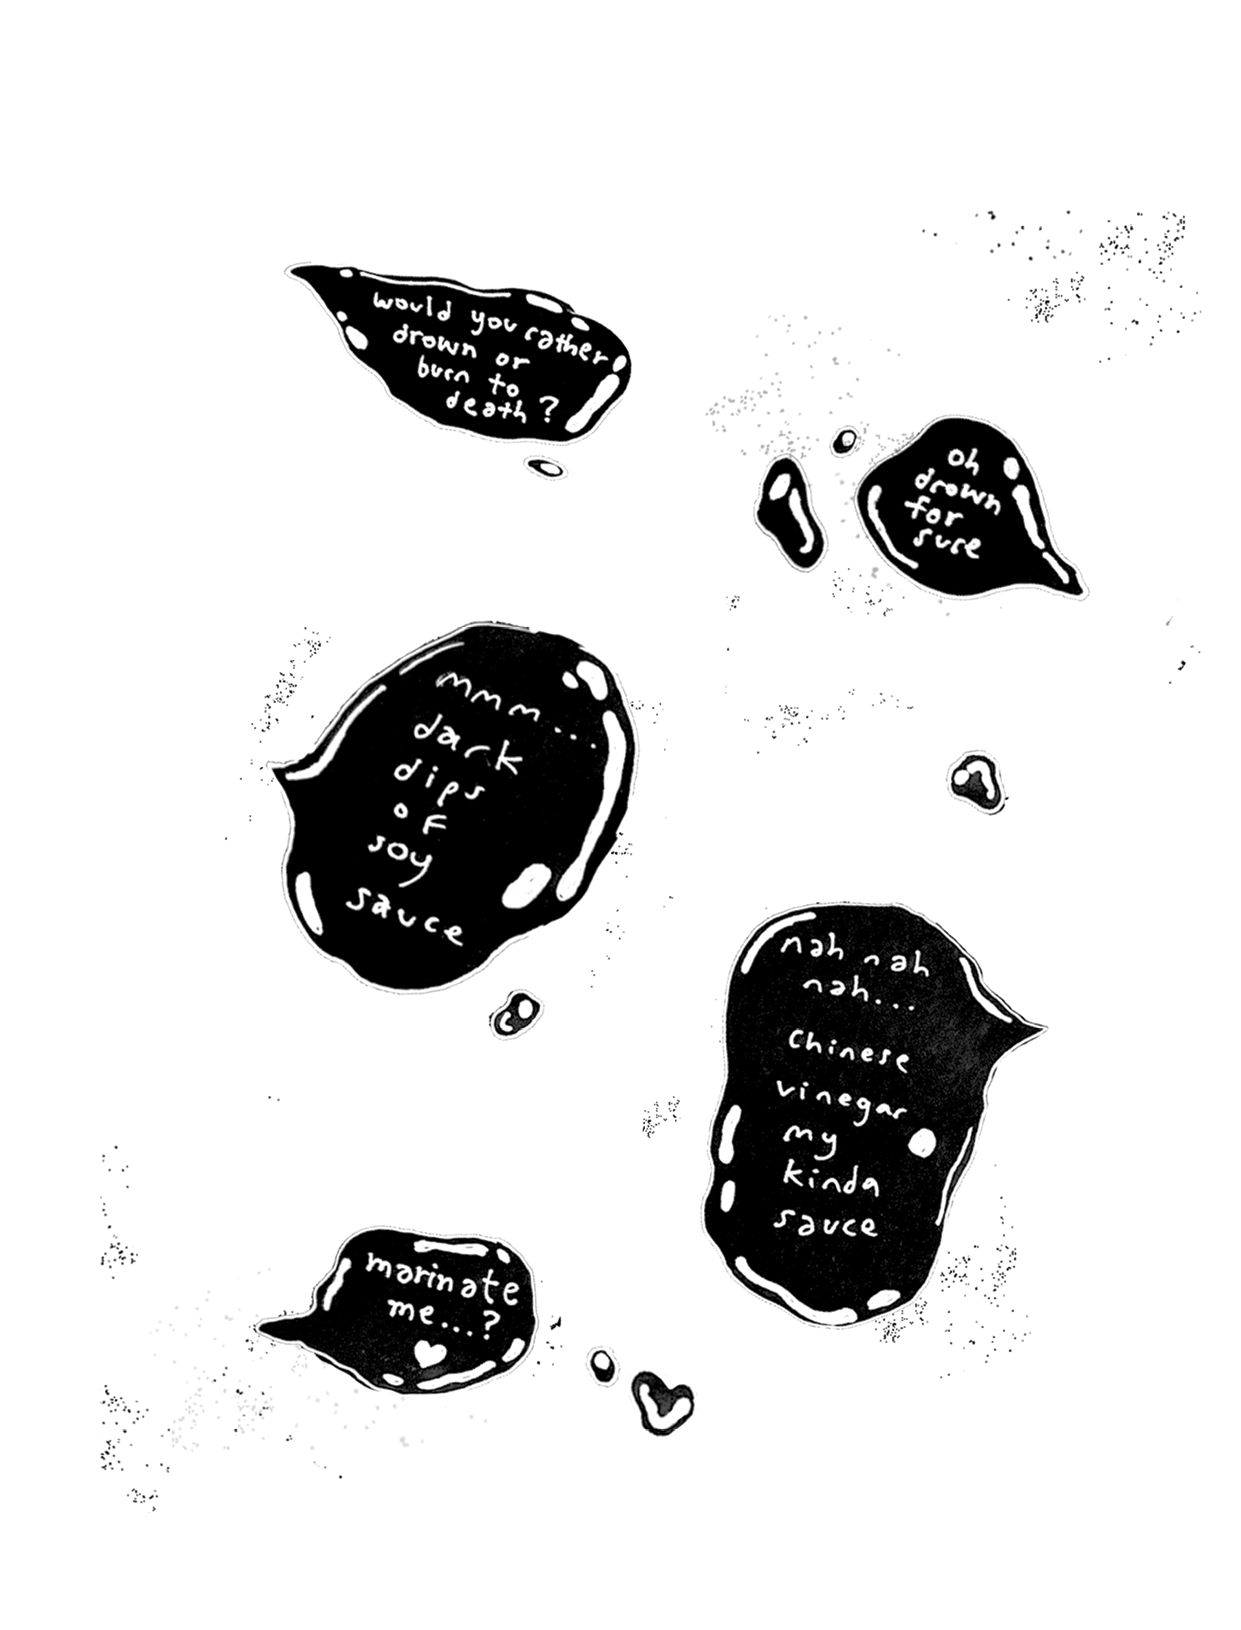 would you rather
drown or
burn to
death?
oh
drown
for
sure
mmm....
dark
dips
of
soy
sauce
nah nah
nah...
Chinese
vinegar
my
kinda
sauce
marinate
me...?